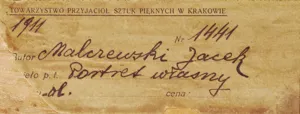 TOWARZYSTWO PRZYJACIÓŁ SZTUK PIĘKNYCH W KRAKOWIE
1911 Nr 1441
Autor Malczewski Jacek
ieło p.t. Portret własny
ol. cena